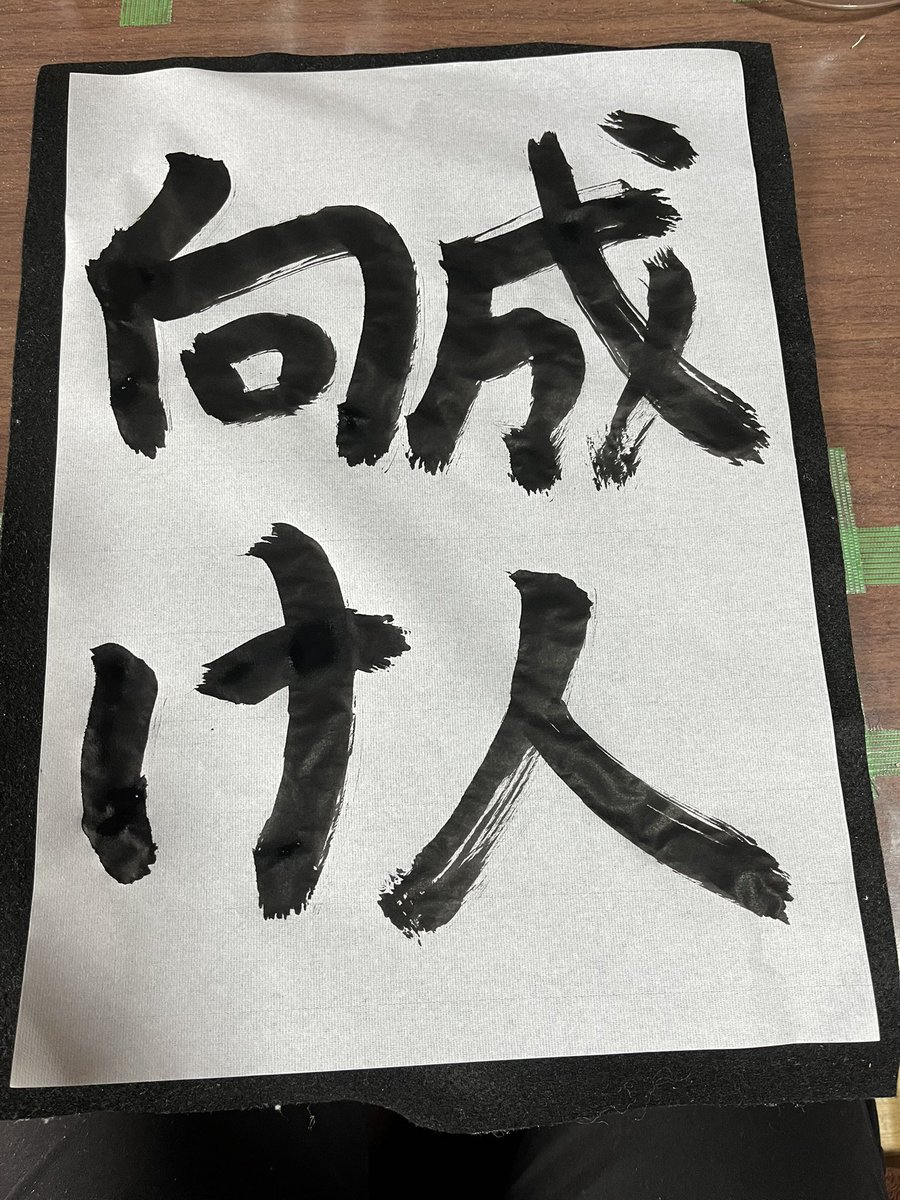 成人
向け